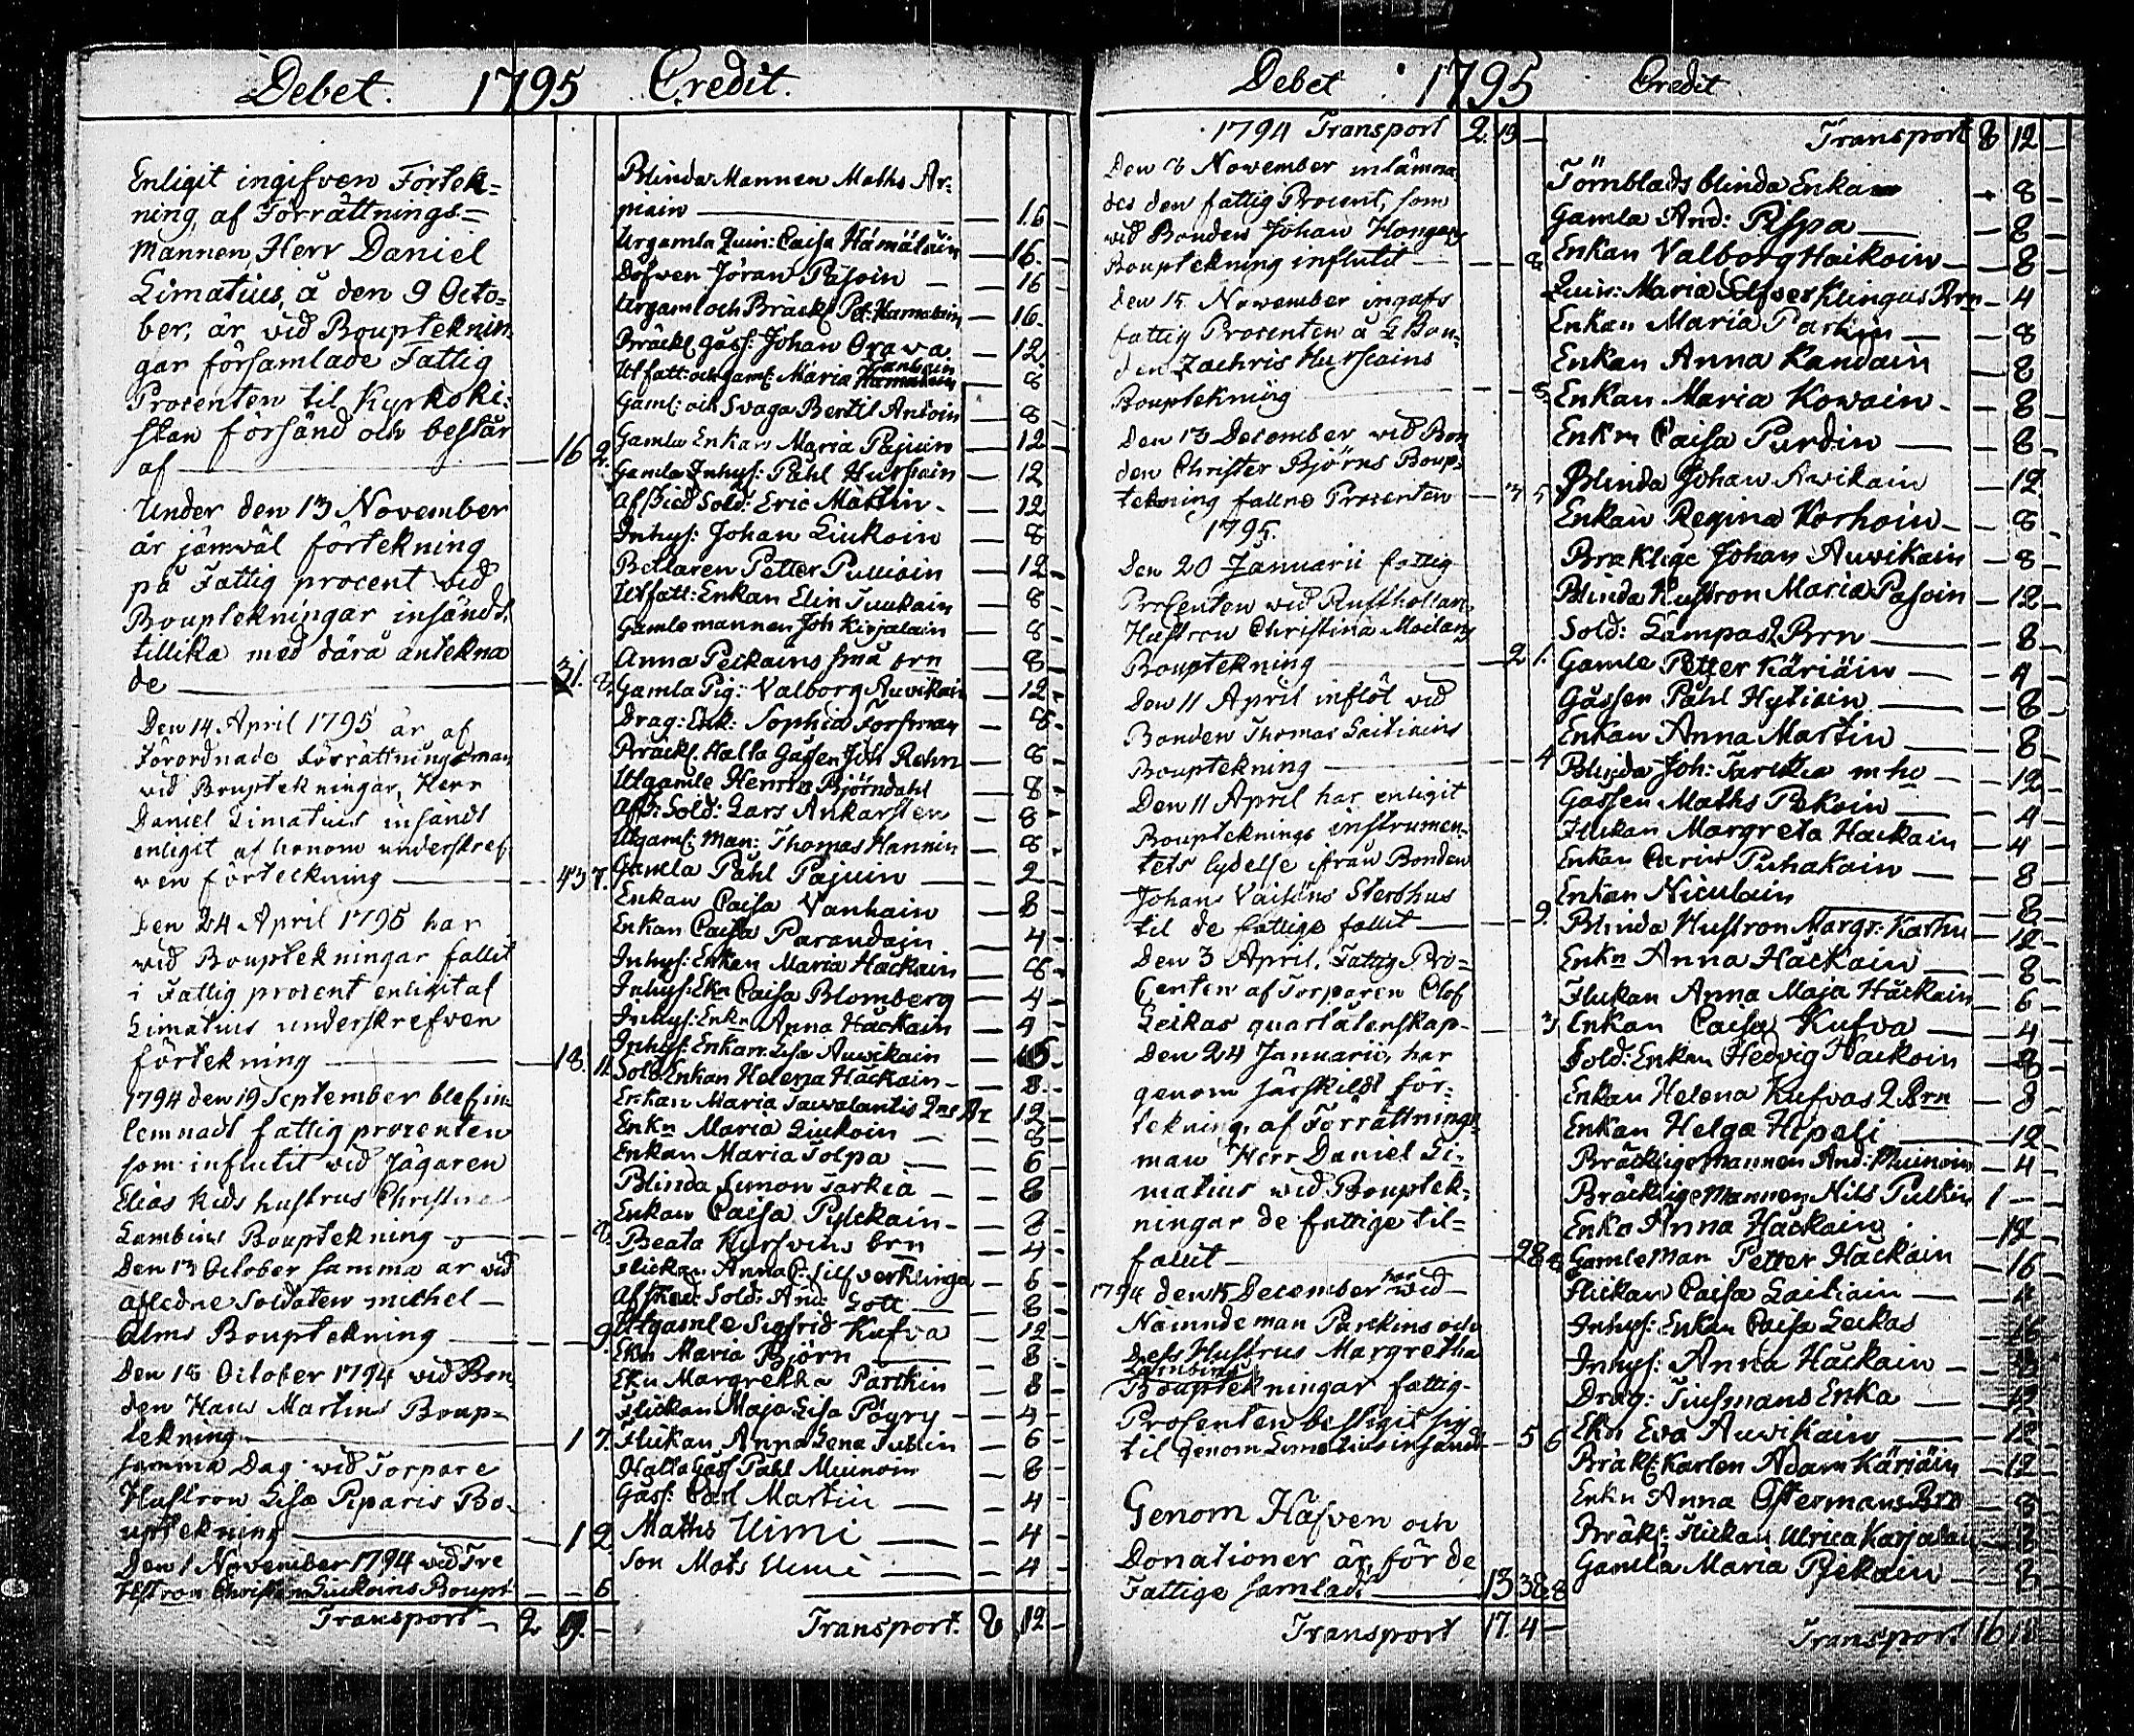 Debet. 1795 Credit.
Enligit ingifven Förtek=
ning, af Förrättnings=
mannen, Herr Daniel
Limatius, å den 9 Octo=
ber, är vid Bouptecknin
gar församlade Fattig
Procenten til Kyrkoki=
stan försänd och består
af — 16 2.
Under den 13 November
är jämväl förtekning
på Fattig procent vid
Bouptekningar insändt,
tillika med därå antekna
de — 31. 8.
Den 14 April 1795 är af
Förordnade Förrättningsman
vid Bouptekningar, Herr
Daniel Limatius insändt
enligit af honom underskref
wen förteckning — 43 7.
Den 24 April 1795 har
wid Bouptekningar fallit
i Fattig procent enligit af
Limatius underskrefven
förtekning — 18. 11.
1794 den 19 September blef in=
lemnadt fattig procenten
som influtit wid Jägaren
Elias Kids hustrus Christina
Lambins Bouptekning — 8.
Den 13 October samma år vid
aflidne Soldaten Michel
Alms Bouptekning — 9.
Den 18 October 1794 vid Bon
den Hans Martins Boup=
tekning — 1 7.
samma Dag vid Torpare
Hustron Lisa Piparis Bo-
uptekning — 1 2.
Den 1 November 1794 vid
Hustron Christin Liukoins Boupt — 6
Transport 2 19. —
Blinda Mannen Maths Ar=
piain — 16
Urgamla Quin: Caisa Hämäläin — 16. —
Döfwen Jöran Pasoin — 16 —
Urgaml och Bräckl Pet: Hamalain — 16. —
Bräckl. gåss: Johan Orava — 12. —
Utfatt: och gaml: Maria — 8 —
Gaml: och Svaga Bertil Antoin — 8 —
Gamla Enkan Maria Pajuin — 12 —
Gamla Inhys: Påhl Hursain — 12 —
Afsked Sold: Eric Martin — 12
Inhys: Johan Liukoin — 8
Betlaren Petter Pulliain — 12 —
Utfatt: Enkan Elin Tuukain — 8 —
Gamle mannen Joh Kirjalain — 8 —
Anna Peikains små brn — 8 —
Gamla Pig: Valborg Auvikain — 12 —
Drag: Enk: Sophia Forsman — 8 —
Bräckl. Halta Gåssen Joh Rehn — 8 —
Utgamle Henric Björndahl — 8 —
Afsk: Sold: Lars Ankarsten — 8 —
Utgaml: Man: Thomas Hannin — 8 —
Gamla Påhl Pajuin — 2 —
Enkan Caisa Vanhain — 8 —
Enkan Caisa Parandain — 4 —
Inhys: Enkan Maria Häckain — 8 —
Inhys: Ekn Caisa Blomberg — 4 —
Inhys: Enkn Anna Häckain — 4 —
Inhys: Enkan Lisa Auvikain —
Sold Enkan Helena Häckain — 8. —
Enkan Maria — 12 —
Enkn Maria Liukoin — 8 —
Enkan Maria Tolpa — 6 —
Blinda Simon Tarkia — 8 —
Enkan Caisa Pylckain — 8 —
Beata Kurfvins brn — 4 —
Flickan Anna C: Silfverklinga — 6 —
Afsked: Sold: And: Gott — 8 —
Utgamle Sigfrid Kufva — 12 —
Ekn Maria Björn — 8 —
Ekn Margretha Partkin — 8 —
Flickan Maja Lisa Pöyry — 4 —
Flickan Anna Lena Tublin — 6 —
Halta Gåss Påhl Muinoin — 8 —
Gåss: Carl Martin — 4 —
Maths Uimi — 4 —
Son Mats Uimi — 4 —
Transport. 8 12 —
Debet 1795 Credit
1794 Transport 2. 19 —
Den 8 November inlämna
des den fattig Procent, som
wid Bonden Johan
Bouptekning influtit — 8.
Den 15 November ingafs
fattig Procenten å Bon=
den Zachris Hurskains
Bouptekning — 8.
Den 13 December wid Bon
den Christer Björns Boup=
tekning fallne Procenten — 3 5
1795.
Den 20 Januarii fattig
Procenten wid Rusthollar
Hustron Christina
Bouptekning — 2 1.
Den 11 April inflöt vid
Bonden Thomas Laitinins
Bouptekning — 4
Den 11 April har enligit
Boupteknings instrumen=
tets lydelse ifrån Bonden
Johan Vaitins Sterbhus
til de fattige fallit — 9.
Den 3 April. Fattig Pro=
centen af Torparen Olof
Leikas quarlåtenskap — 3
Den 24 Januarii, har
genom särskildt för=
tekning, af Förrättnings
man Herr Daniel Li=
matius wid Bouptek=
ningar de fattige til=
fallit — 28
1794 den 15 December har wid
Nämndeman Parckins och
dess Hustrus Margretha
Bouptekningar fattig-
Procenten bestigit sig
til genom Limatius insändt — 5 6
Genom Håfven och
Donationer är, för de
Fattige samladt — 13 38 8
Transport 17. 4 —
Transport 8 12 —
Törnblads blinda Enka — 8 —
Gamla And: Pispa — 8 —
Enkan Valborg Haikoin — 8 —
Quin: Maria Silfverklingas Brn — 4
Enkan Maria Partkin — 8
Enkan Anna Kandain — 8
Enkan Maria Kowain — 8 —
Enkn Caisa Purdin — 8 —
Blinda Johan Avikain — 12
Enkan Regina Korhoin — 8 —
Bräklige Johan Auvikain — 8 —
Blinda Hustron Maria Pasoin — 12 —
Sold: Lampas 2 Brn — 8 —
Gamle Petter Käriäin — 4 —
Gåssen Påhl Hytiäin — 8 —
Enkan Anna Martin — 8 —
Blinda Joh: — 12 —
Gåssen Maths Pekoin — 4 —
Flickan Margreta Häckain — 4 —
Enkan Carin Puhakain — 8 —
Enkan Niculain — 8 —
Blinda Hustron Margr: Karhu — 12 —
Enkn Anna Häckain — 8 —
Flickan Anna Maja Häckain — 6 —
Enkan Caisa Kufva — 4 —
Sold: Enkan Hedvig Häckoin — 8 —
Enkan Helena Kufvas 2 Brn — 8 —
Enkan Helga Hepeli — 12 —
Bräcklige mannen And: Muinoin — 4 —
Bräcklige Mannen Nils Pulkin 1 —
Enka Anna Häckain — 12 —
Gamle Man Petter Häckain — 16 —
Flickan Caisa Laitiain —
Inhys: Enkan Caisa Leikas —
Inhys: Anna Häckain —
Drag: Tiusmans Enka — 12 —
Ekn Eva Auvikain — 12 —
Bräkl: Karlen Adam Kärjäin — 12 —
Enkn Anna Ostermans Brn — 8 —
Bräkl: Flickan Ulrica Karjalain —
Gamla Maria Pekain — 8 —
Transport 16